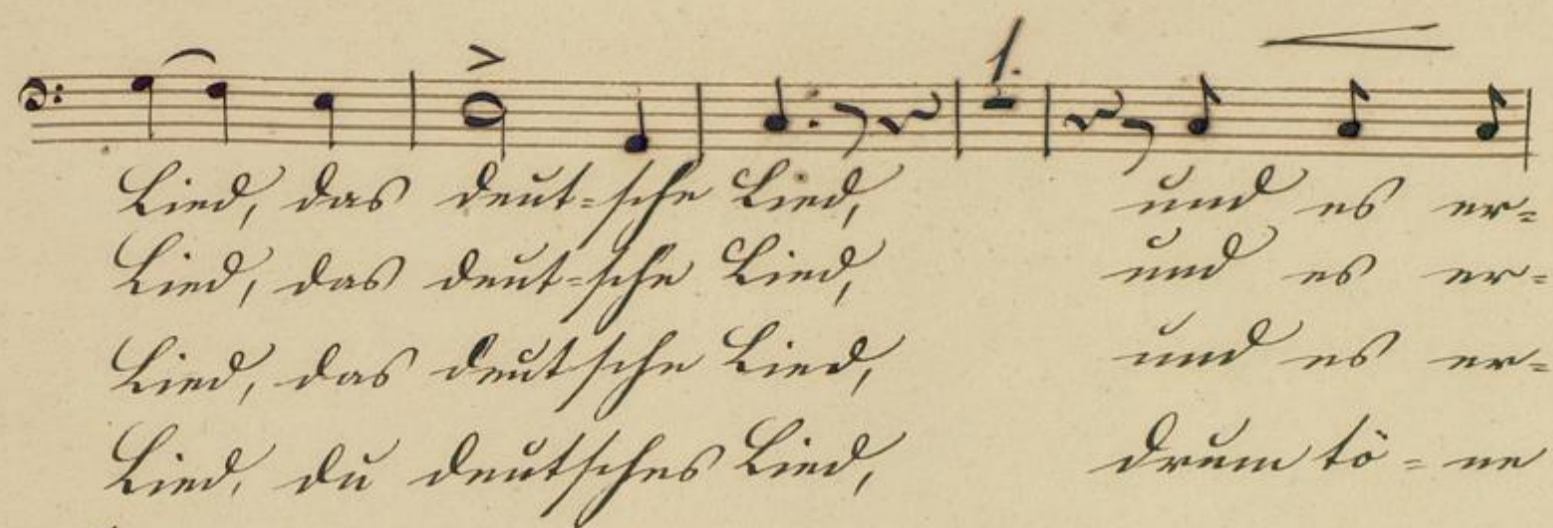 1.
Lied, das deut=sche Lied, und es er=
Lied, das deut=sche Lied, und es er=
Lied, das deutsche Lied, und es er=
Lied, du deutsches Lied, drum tö=ne